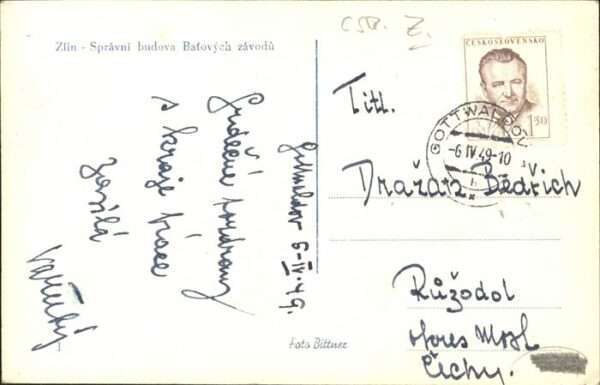 Zlín - Správní budova Baťových závodů
ČSR. Z.
ČESKOSLOVENSKO
1.50
GOTTWALDOV
-6 IV 49-10
Gottwaldov 6-IV-49.
Srdečné pozdravy
s kraje práce
zasílá
Titl.
Dražan Bedřich
Růžodol
okres Most
Čechy.
Foto Bittner